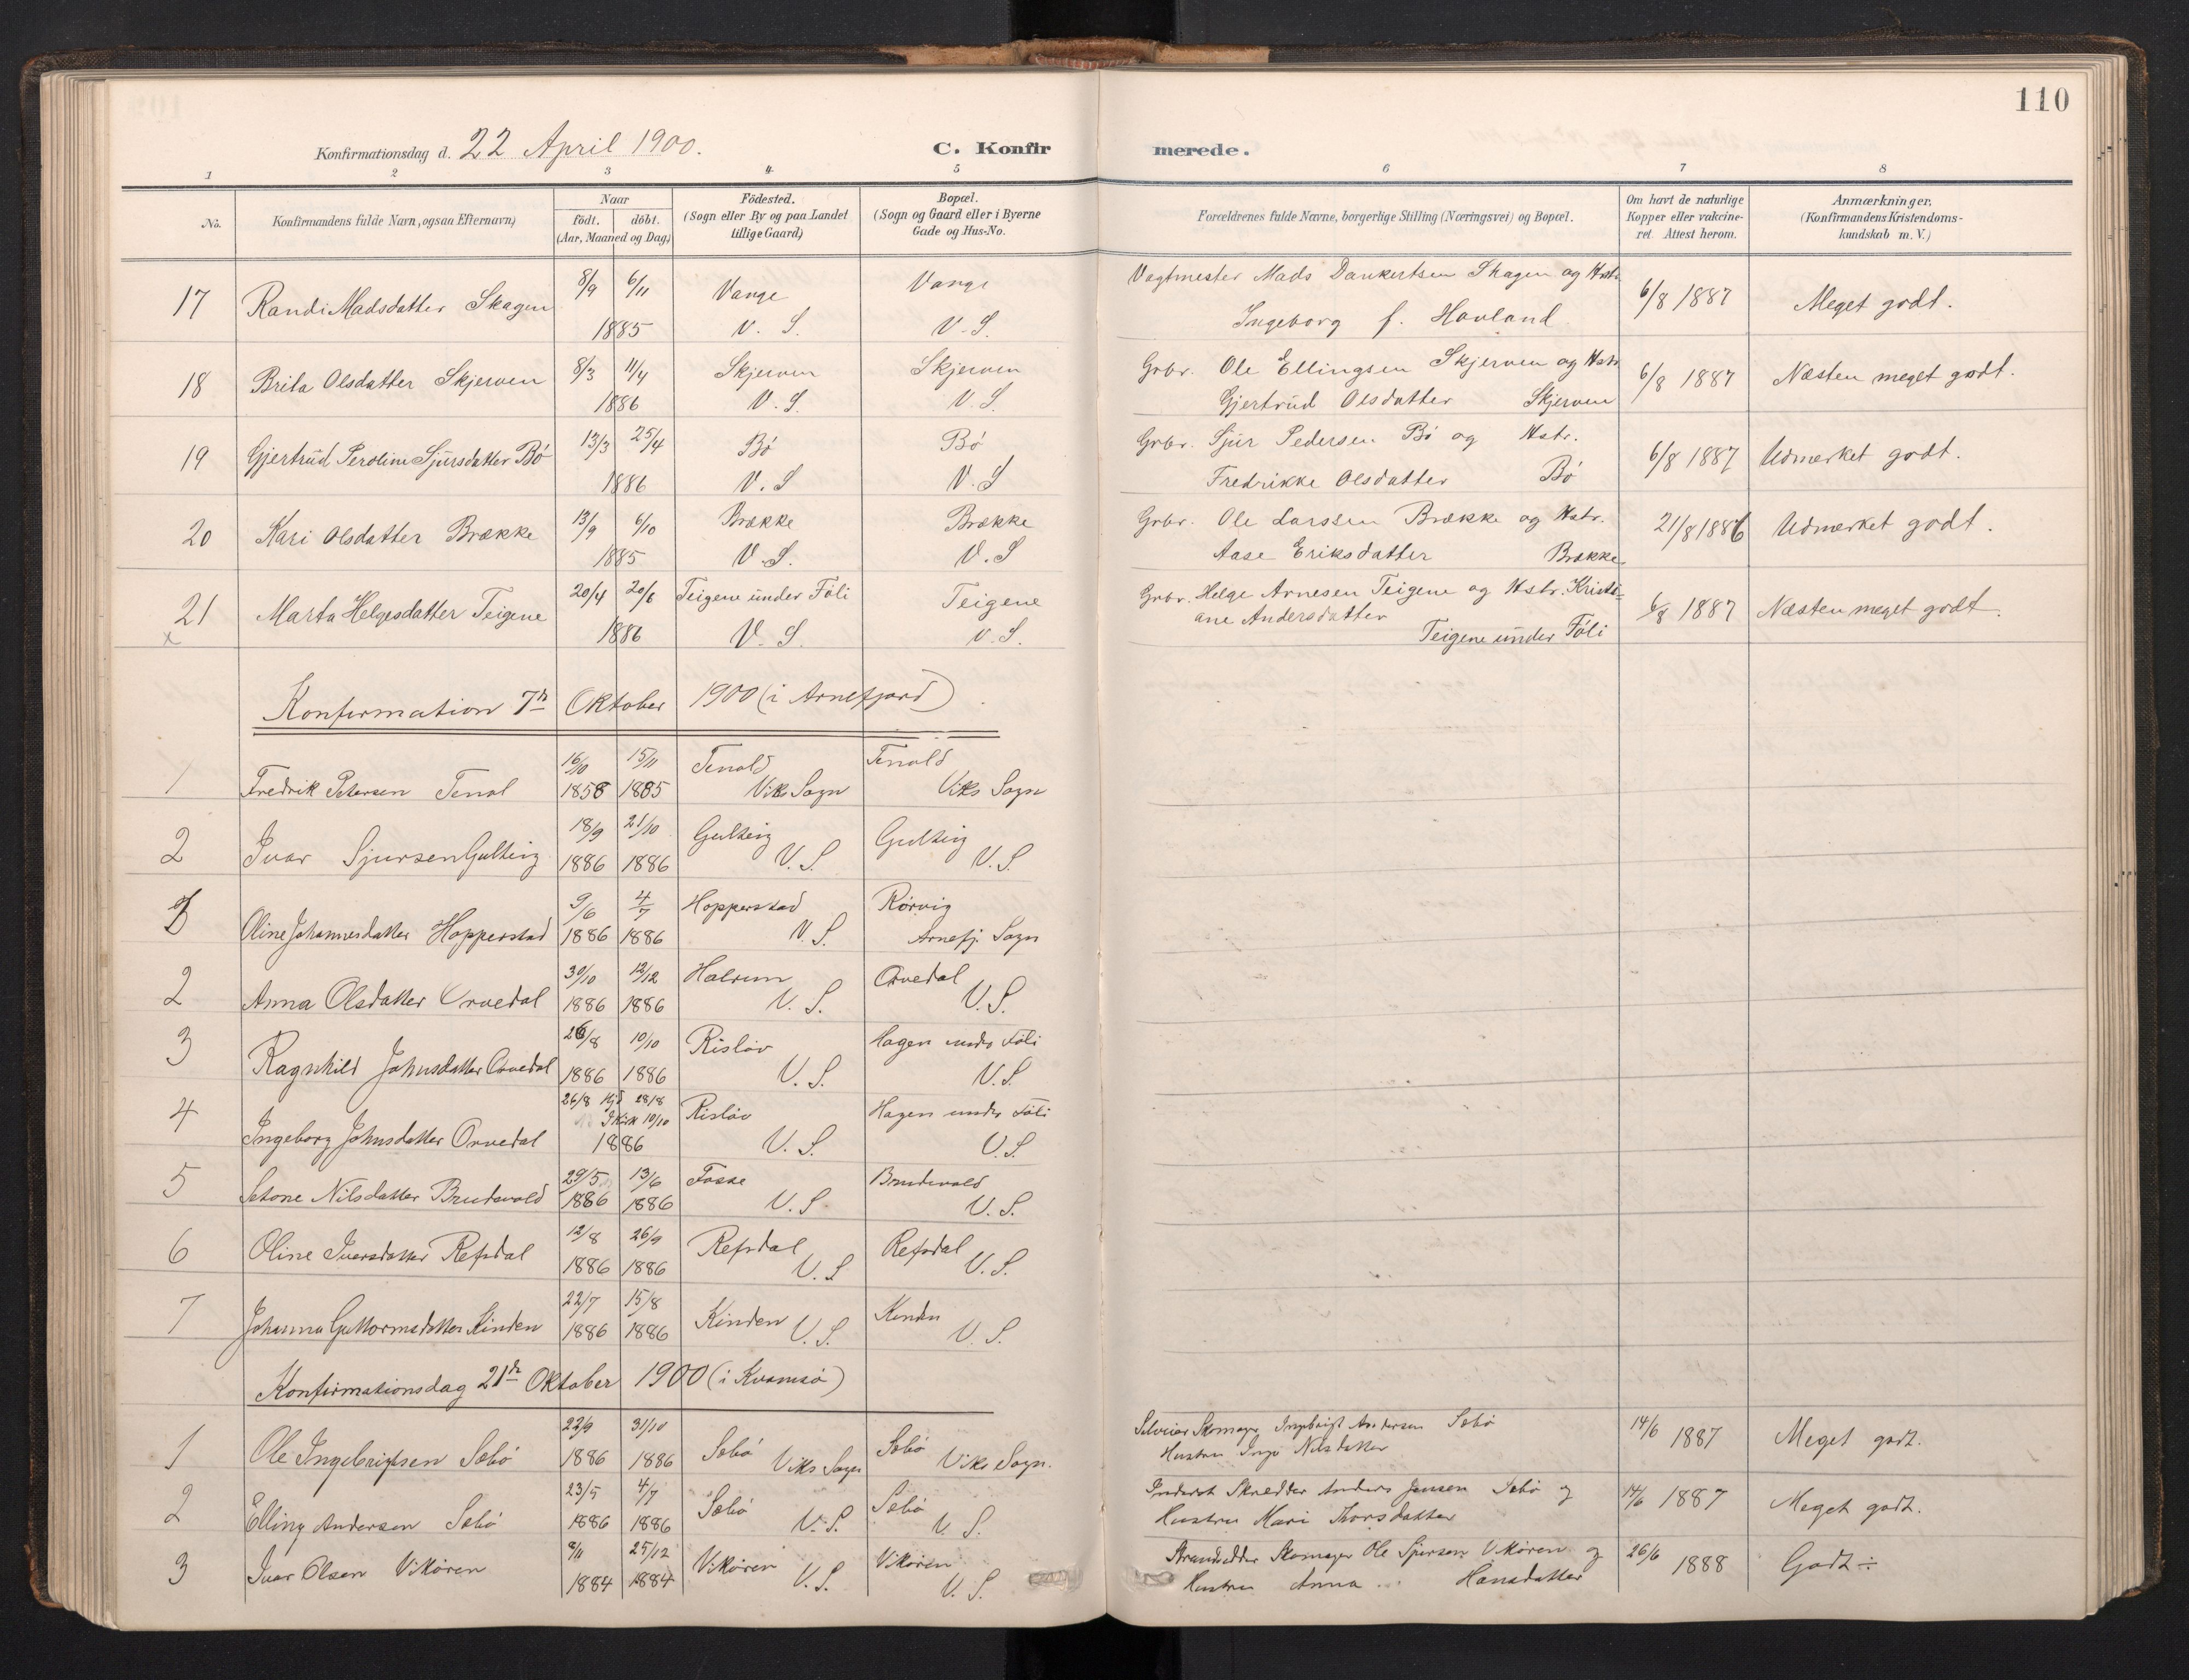 110
Konfirmationsdag d. 22 April 1900.
C. Konfirmerede.
1 2 3 4 5 6 7 8
No.
Konfirmandens fulde Navn, ogsaa Efternavn)
Naar
födt. döbt.
(Aar, Maaned og Dag)
Födested.
(Sogn eller By og paa Landet
tillige Gaard)
Bopæl.
(Sogn og Gaard eller i Byerne
Gade og Hus-No.
Forældrenes fulde Navne, borgerlige Stilling (Næringsvei) og Bopæl.
Om havt de naturlige
Kopper eller vakcine-
ret. Attest herom.
Anmærkninger.
(Konfirmandens Kristendoms-
kundskab m. V.)
17 Randi Madsdatter Skagen 8/9 6/11 Vange Vange Vagtmester Mads Dankertsen Skagen og Hstr. 6/8 1887 Meget godt.
1885 V. S. V. S. Ingeborg f. Hovland
18 Brita Olsdatter Skjerven 8/3 11/4 Skjerven Skjerven Grbr. Ole Ellingsen Skjerven og Hstr. 6/8 1887 Næsten meget godt.
1886 V. S. V. S. Gjertrud Olsdatter Skjerven
19 Gjertrud Peroline Sjursdatter Bö 13/3 25/4 Bö Bö Grbr. Sjur Pedersen Bö og Hstr. 6/8 1887 Udmærket godt.
1886 V. S V. S Fredrikke Olsdatter Bö
20 Kari Olsdatter Brække 13/9 6/10 Brække Brække Grbr. Ole Larssen Brække og Hstr. 21/8 1886 Udmærket godt.
1885 V. S. V. S Aase Eriksdatter Brække.
21 Marta Helgesdatter Teigene 20/4 20/6 Teigene under Föli Teigene Grbr. Helge Arnesen Teigene og Hstr. Kristi-
x 1886 V. S. V. S. ane Andersdatter 6/8 1887 Næsten meget godt.
Teigene under Föli
Konfirmation 7de Oktober 1900 (i Arnefjord)
1 Fredrik Petersen Tenol 16/10 15/11 Tenold Tenold
1858 1885 Viks Sogn Viks Sogn
2 Ivar Sjursen Gulteig 18/9 21/10 Gulteig Gulteig
1886 1886 V. S. V. S.
Oline Johannesdatter Hopperstad 9/6 4/7 Hopperstad Rörvig
1886 1886 V. S. Arnefj. Sogn
2 Anna Olsdatter Orvedal 30/10 12/12 Halrum Orvedal
1886 1886 V. S. V. S.
3 Ragnhild Johnsdatter Orvedal 26/8 10/10 Rislöv Hagen under Föli
1886 1886 V. S. V. S.
4 Ingeborg Johnsdatter Orvedal 26/8 Hjd 28/8 Rislöv Hagen under Föli
I Kirk 10/10
1886 V. S. V. S.
5 Nilsdatter Brudevold 29/5 13/6 Fosse Brudevold
1886 1886 V. S. V. S.
6 Oline Iversdatter Refsdal 12/8 26/9 Refsdal Refsdal
1886 1886 V. S V. S.
7 Johanna Guttormsdatter Kinden 22/7 15/8 Kinden Kinden
1886 1886 V. S. V. S.
Konfirmationsdag 21de Oktober 1900 (i Kvamsö)
1 Ole Ingebrigtsen Sæbö 22/9 31/10 Sæbö Sæbö Selveier Skomager Ingebrigt Andersen Sæbö 14/6 1887 Meget godt.
1886 1886 Viks Sogn Viks Sogn. Hustru Nilsdatter
2 Elling Andersen Sæbö 23/5 4/7 Sæbö Sæbö Inderst Skrædder Anders Jensen Sæbö og 14/6 1887 Meget godt.
1886 1886 V. S. V. S. Hustru Mari Thorsdatter
3 Ivar Olsen Vikören 8/11 25/12 Vikören Vikören Strandsidder Skomager Ole Sjursen Vikören og 26/6 1888 Godt ÷
1884 1884 V. S. V. S. Hustru Anna Hansdatter